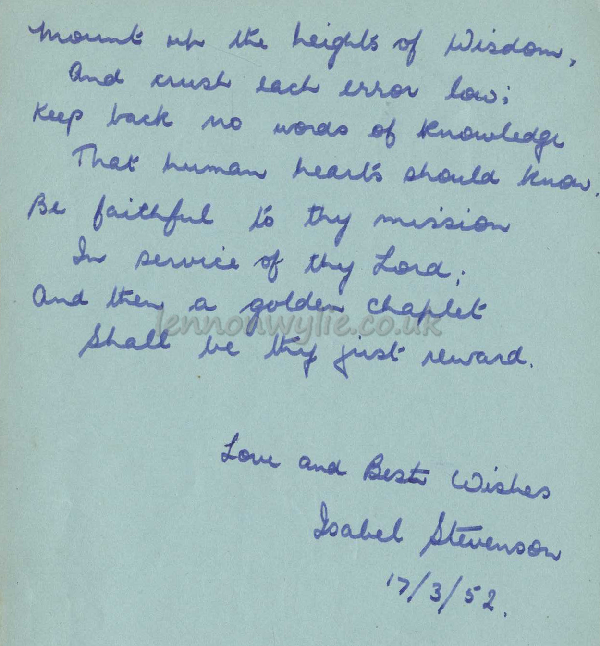 Mount up the heights of Wisdom,
And crush each error low;
Keep back no words of knowledge
That human hearts should know.
Be faithful to thy mission
In service of thy Lord;
And then a golden chaplet
lennonwylie.co.uk
Shall be thy just reward.
Love and Best Wishes
Isabel Stevenson
17/3/52.